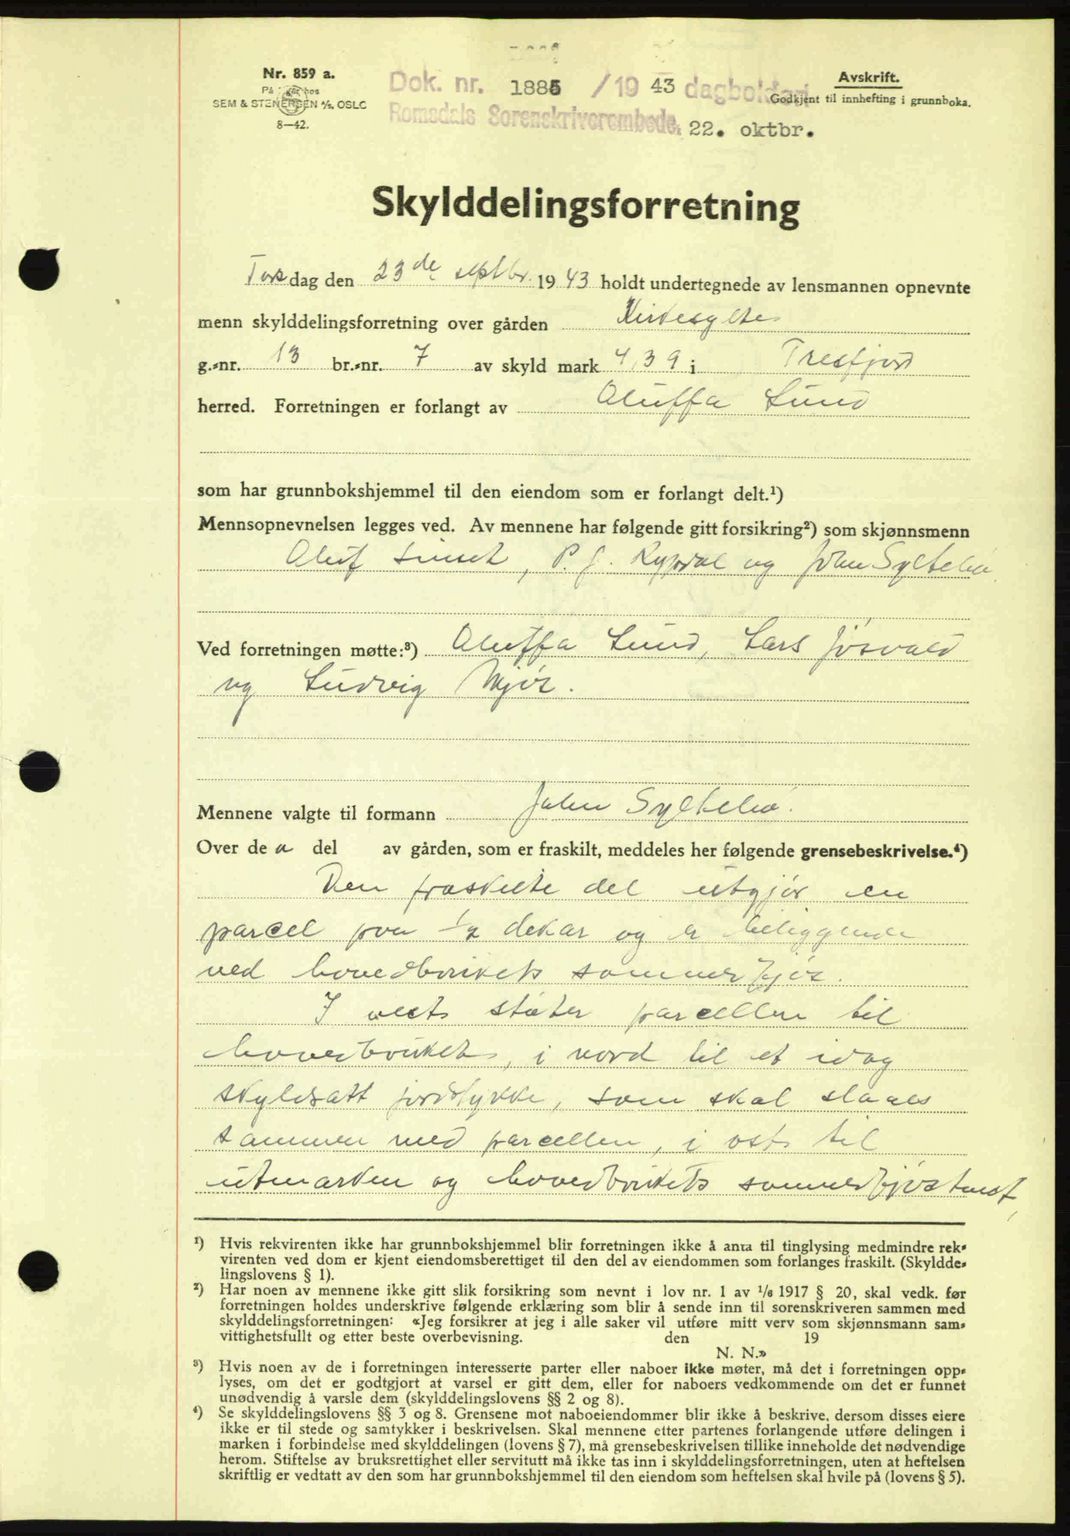 Nr. 859 a.
På hos
SEM & STENERSEN A/S, OSLO
8—42.
Dok. nr. 1885 /19 43 dagboken
Romsdals Sorenskriverembede, 22. oktbr.
Avskrift.
Godkjent til innhefting i grunnboka.
Skylddelingsforretning
Torsdag den 23de septbr. 1943 holdt undertegnede av lensmannen opnevnte
menn skylddelingsforretning over gården Kirkesylte
g.-nr. 13 br.-nr. 7 av skyld mark 4,39 i Tresfjord
herred. Forretningen er forlangt av Oluffa Lund
som har grunnbokshjemmel til den eiendom som er forlangt delt.¹)
Mennsopnevnelsen legges ved. Av mennene har følgende gitt forsikring²) som skjønnsmenn
Oluf P. J. Rypdal og John Syltebø
Ved forretningen møtte:³) Oluffa Lund, Lars Jøsvold
og Ludvig
Mennene valgte til formann John Syltebø.
Over de a del av gården, som er fraskilt, meddeles her følgende grensebeskrivelse.⁴)
Den fraskilte del utgjør en
parcel paa ½ dekar og er beliggende
ved hovedbrukets sommerfjøs.
I vest støter parcellen til
hovedbruket, i nord til et idag
skyldsatt jordstykke, som skal slaaes
sammen med parcellen, i øst til
utmarken og hovedbrukets sommerfjøstomt,
¹) Hvis rekvirenten ikke har grunnbokshjemmel blir forretningen ikke å anta til tinglysing medmindre rek-
virenten ved dom er kjent eiendomsberettiget til den del av eiendommen som forlanges fraskilt. (Skyldde-
lingslovens § 1).
²) Har noen av mennene ikke gitt slik forsikring som nevnt i lov nr. 1 av 1/6 1917 § 20, skal vedk. før
forretningen holdes underskrive følgende erklæring som blir å sende inn til sorenskriveren sammen med
skylddelingsforretningen: «Jeg forsikrer at jeg i alle saker vil utføre mitt verv som skjønnsmann sam-
vittighetsfullt og etter beste overbevisning. den 19
N. N.»
³) Hvis noen av de i forretningen interesserte parter eller naboer ikke møter, må det i forretningen opp-
lyses, om det er godtgjort at varsel er gitt dem, eller for naboers vedkommende om det er funnet
unødvendig å varsle dem (skylddelingslovens §§ 2 og 8).
⁴) Se skylddelingslovens §§ 3 og 8. Grensene mot naboeiendommer blir ikke å beskrive, dersom disses eiere
ikke er til stede og samtykker i beskrivelsen. Skal mennene etter partenes forlangende utføre delingen i
marken i forbindelse med skylddelingen (lovens § 7), må grensebeskrivelsen tillike inneholde det nødvendige
herom. Stiftelse av bruksrettighet eller servitutt må ikke tas inn i skylddelingsforretningen, uten at heftelsen
skriftlig er vedtatt av den som har grunnbokshjemmel til den eiendom som heftelsen skal hvile på (lovens § 5).